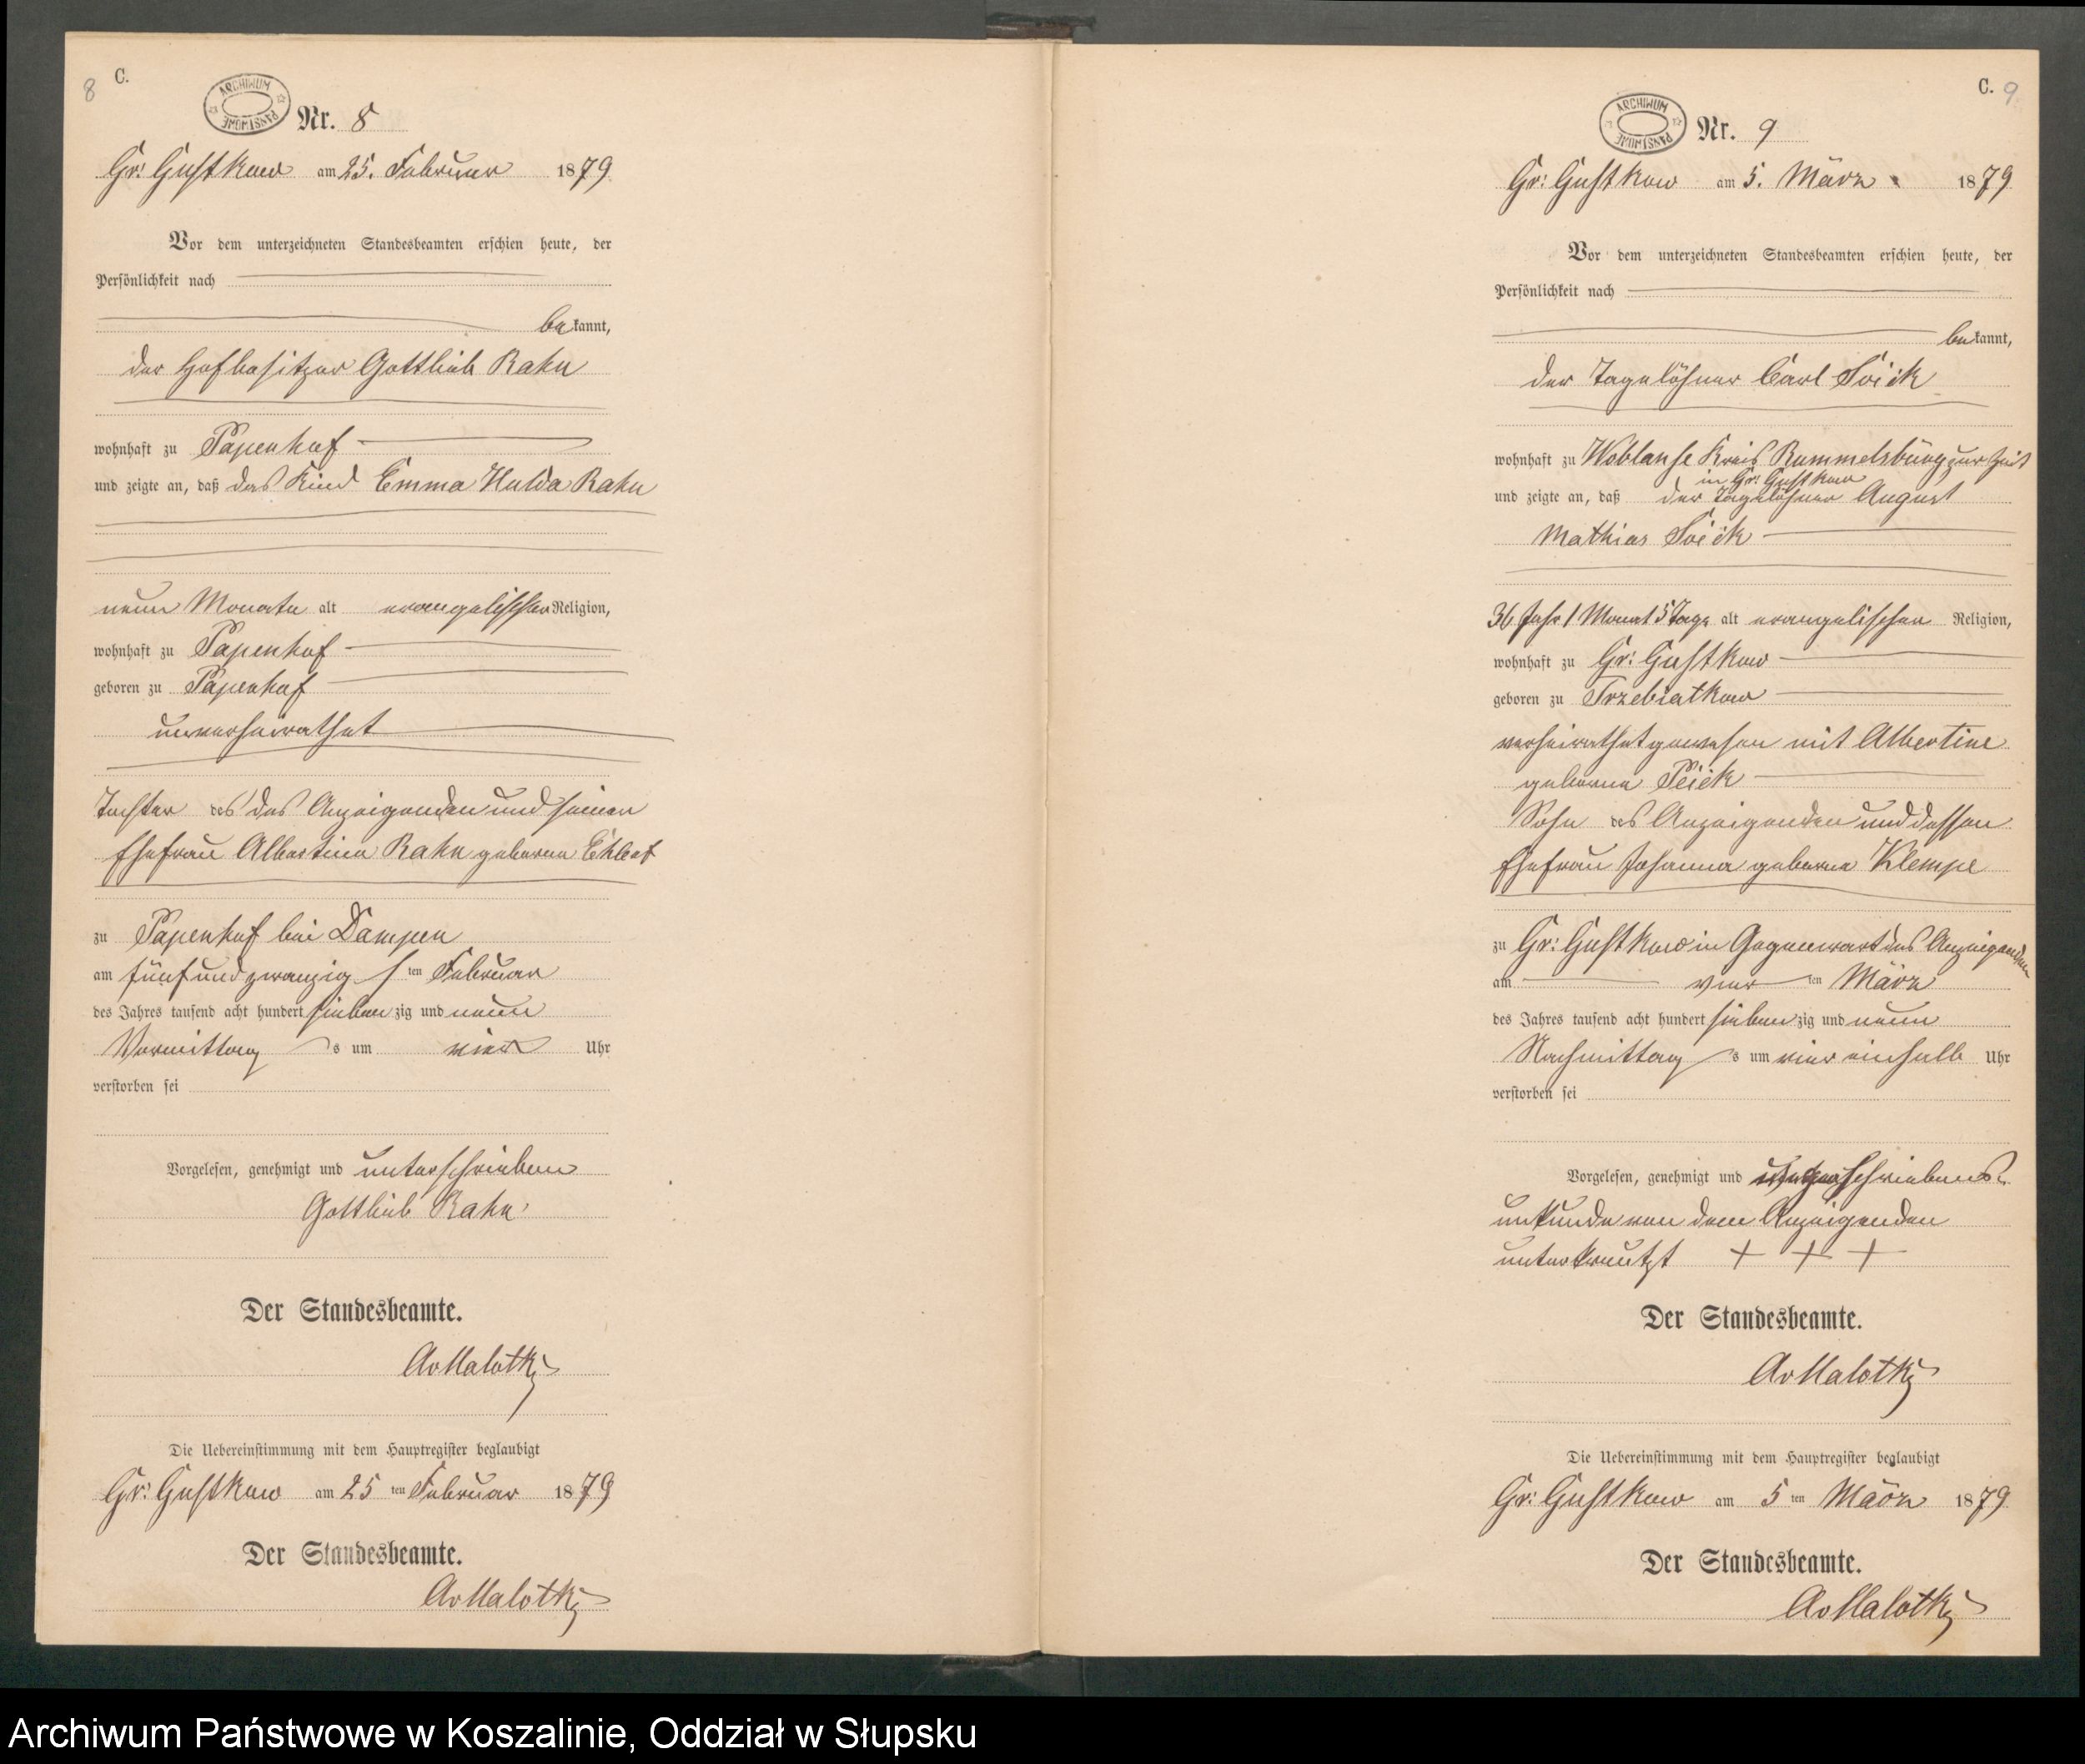 8
C.
ARCHIWUM PAŃSTWOWE
Nr. 8
Gr: Gustkow am 25. Februar 1879
Vor dem unterzeichneten Standesbeamten erschien heute, der
Persönlichkeit nach
bekannt,
der Hofbesitzer Gottlieb Rahn
wohnhaft zu Papenhof
und zeigte an, daß das Kind Emma Hulda Rahn
neun Monate alt evangelischer Religion,
wohnhaft zu Papenhof
geboren zu Papenhof
unverheirathet
Tochter des des Anzeigenden und seiner
Ehefrau Albertine Rahn geborene Ehlert
zu Papenhof bei Dampen
am fünfundzwanzigsten Februar
des Jahres tausend acht hundert siebenzig und neun
Vormittags um vier Uhr
verstorben sei
Vorgelesen, genehmigt und unterschrieben
Gottlieb Rahn
Der Standesbeamte.
AvMalotky
Die Uebereinstimmung mit dem Hauptregister beglaubigt
Gr: Gustkow am 25 ten Februar 1879
Der Standesbeamte.
AvMalotky
C. 9
ARCHIWUM PAŃSTWOWE
Nr. 9
Gr: Gustkow am 5. März 1879
Vor dem unterzeichneten Standesbeamten erschien heute, der
Persönlichkeit nach
bekannt,
der Tagelöhner Carl
wohnhaft zu Woblanse Kreis Rummelsburg zur Zeit
in Gr: Gustkow
und zeigte an, daß der Tagelöhner August
Mathias
36 Jahr 1 Monat 5 Tage alt evangelischer Religion,
wohnhaft zu Gr: Gustkow
geboren zu Trzebiatkow
verheirathet gewesen mit Albertine
geborne Peick
Sohn des Anzeigenden und dessen
Ehefrau Johanna geborne Klempe
zu Gr: Gustkow in Gegenwart des Anzeigenden
am vierten März
des Jahres tausend acht hundert siebenzig und neun
Nachmittags um vier einhalb Uhr
verstorben sei
Vorgelesen, genehmigt und Schreibens
unkunde von dem Anzeigenden
unterkreutzt + + +
Der Standesbeamte.
AvMalotky
Die Uebereinstimmung mit dem Hauptregister beglaubigt
Gr: Gustkow am 5 ten März 1879
Der Standesbeamte.
AvMalotky
Archiwum Państwowe w Koszalinie, Oddział w Słupsku